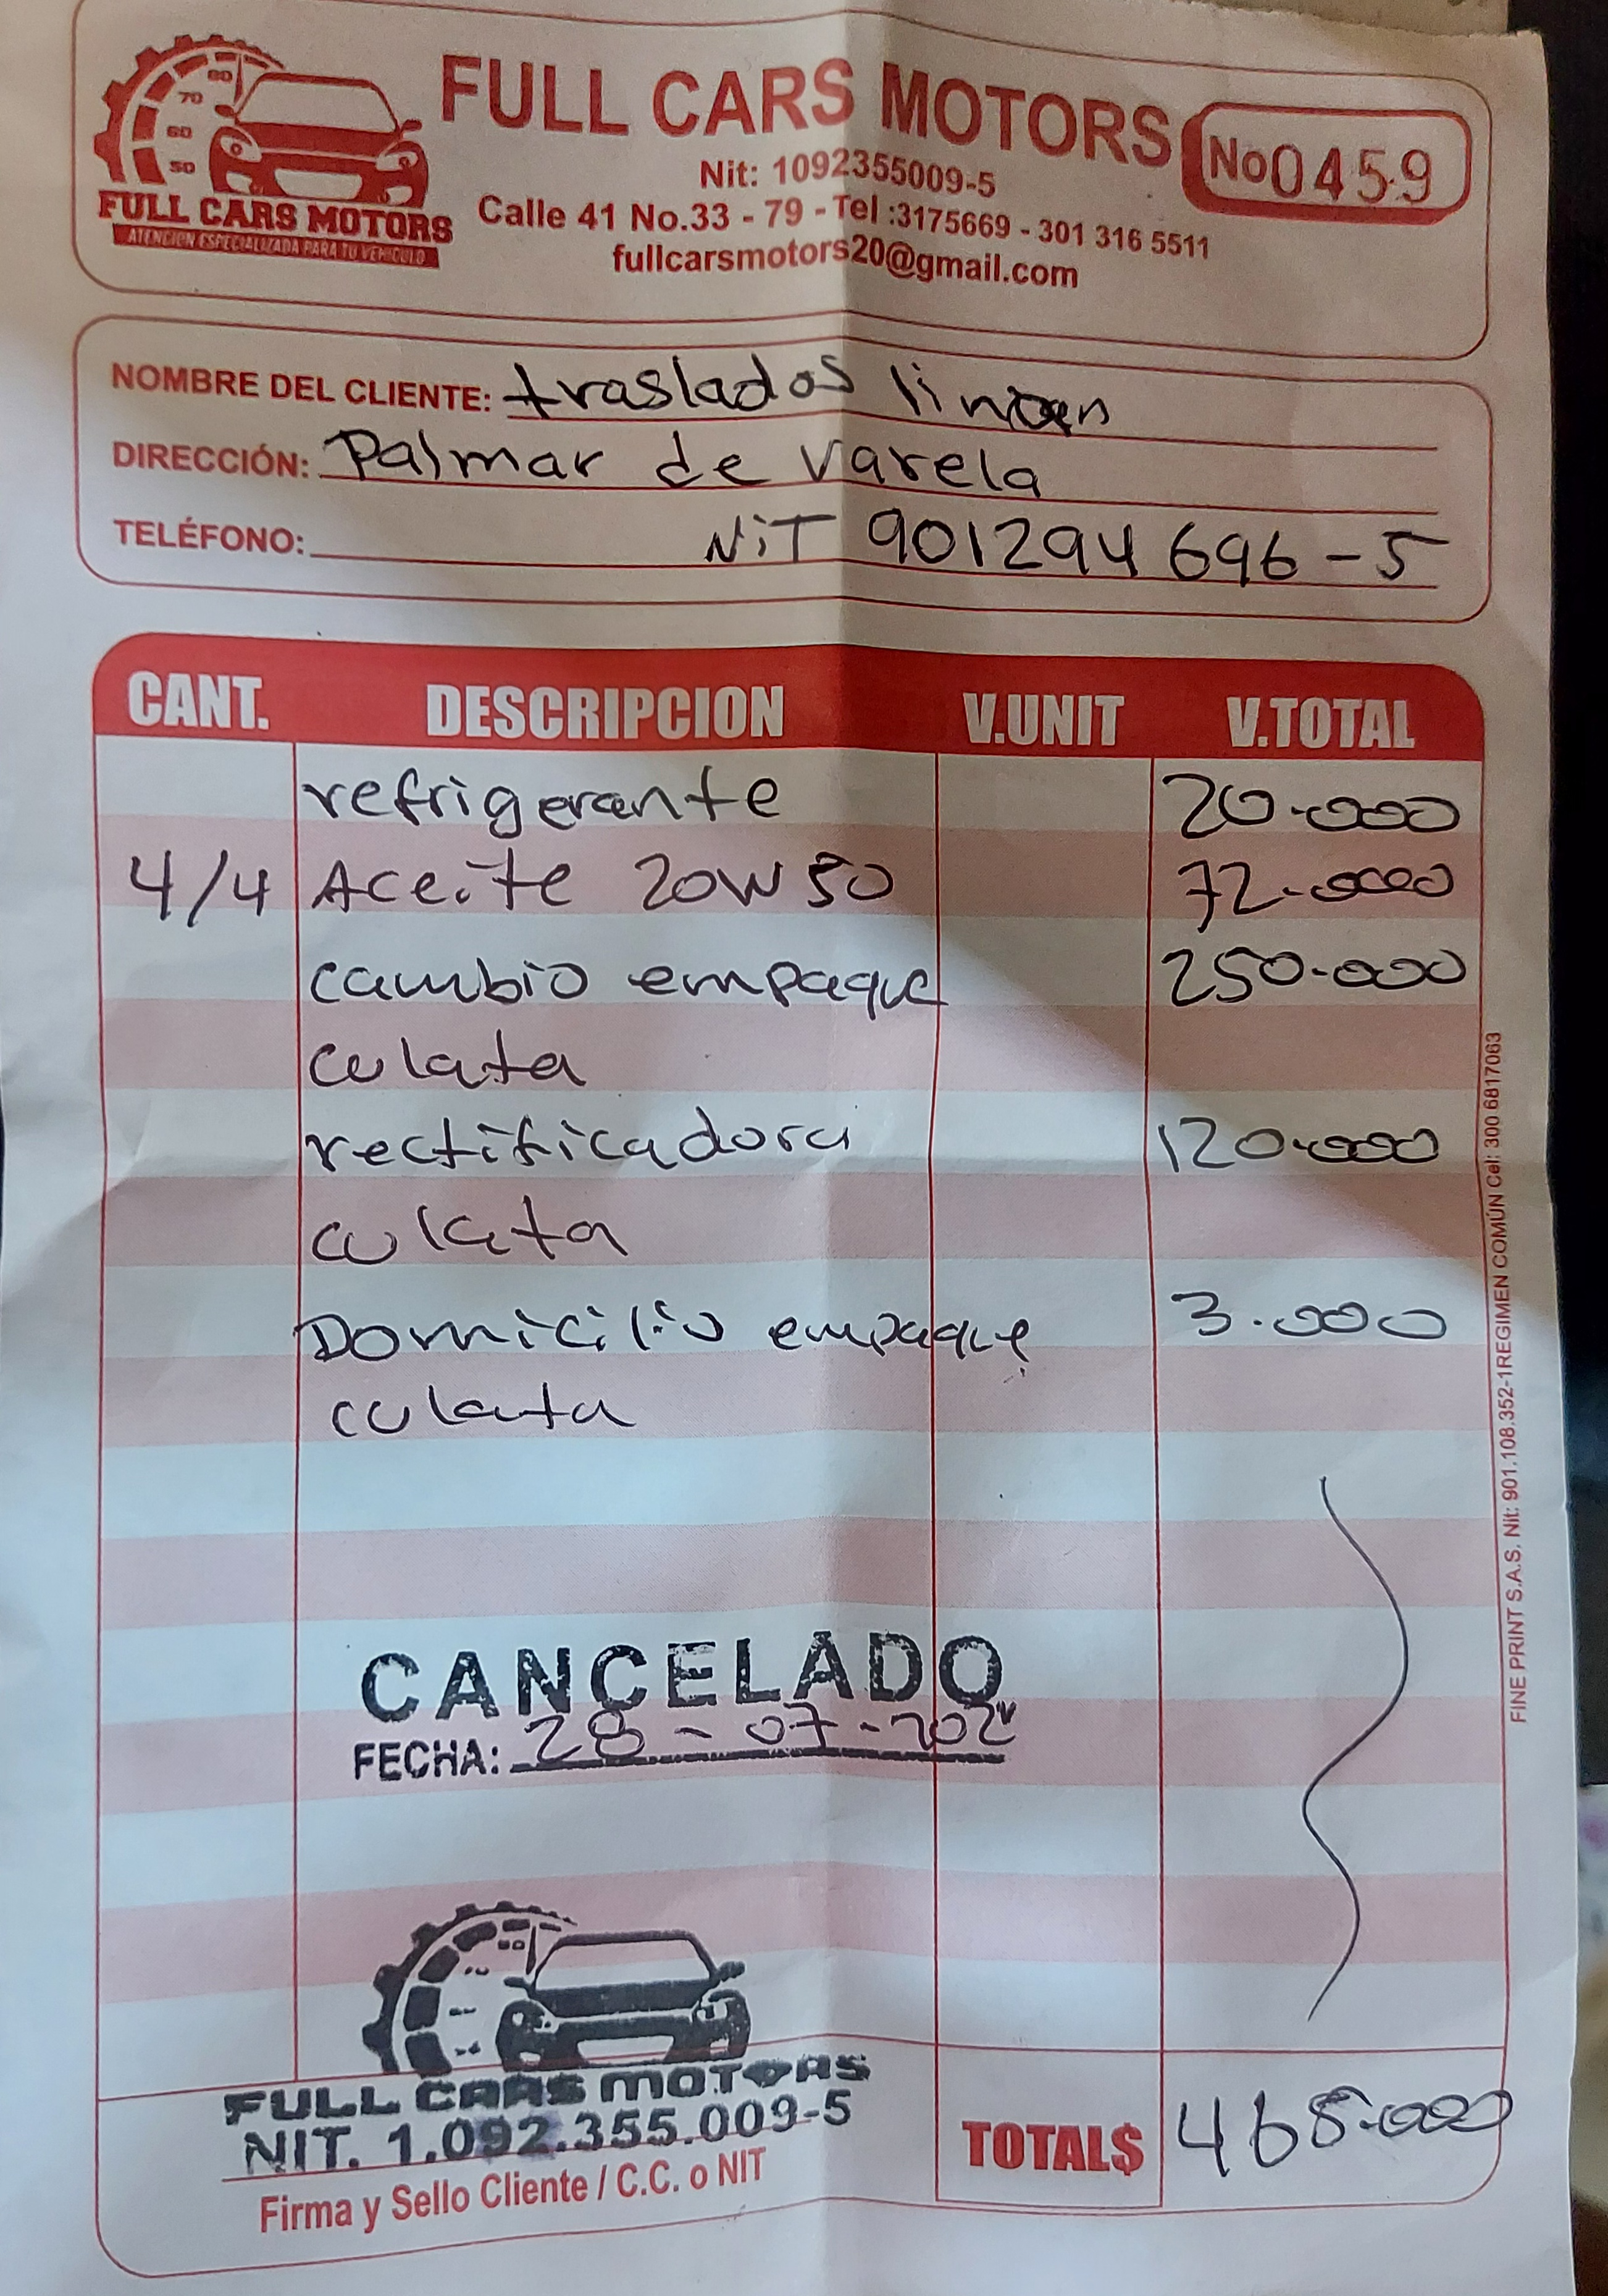 80
70
60
50
FULL CARS MOTORS
ATENCION ESPECIALIZADA PARA TU VEHICULO
FULL CARS MOTORS
No 0459
Nit: 1092355009-5
Calle 41 No.33 - 79 - Tel :3175669 - 301 316 5511
fullcarsmotors20@gmail.com
NOMBRE DEL CLIENTE: traslados
DIRECCIÓN: Palmar de Varela
TELÉFONO: NiT 901294696-5
CANT. DESCRIPCION V.UNIT V.TOTAL
refrigerante 20.000
4/4 Aceite 20W50 72.000
cambio empaque 250.000
culata
rectificadora 120.000
culata
Domicilio empaque 3.000
culata
CANCELADO
FECHA: 28-07-202
FULL CARS MOTORS
NIT. 1.092.355.009-5
Firma y Sello Cliente / C.C. o NIT
TOTAL$ 465.000
FINE PRINT S.A.S. Nit: 901.108.352-1REGIMEN COMÚN Cel: 300 6817063